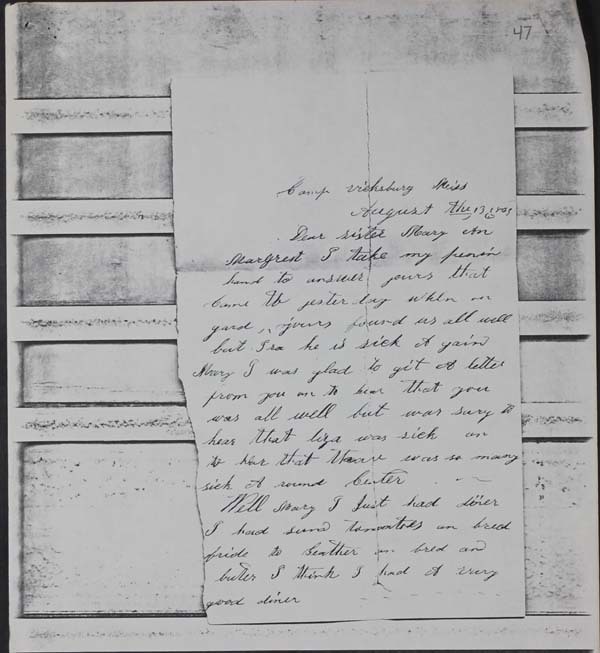 47
Camp vicksburg Miss
August the 13
Dear sister Mary An
Margret I take my penin
hand to answer yours that
Came to yester day when on
gard, yours found us all well
but Ira he is sick A gain
Mary I was glad to git A letter
from you an to hear that you
was all well but was sary to
hear that liza was sick an
to hear that theare was so many
sick A round Center
Well Mary I Just had diner
I had sum tomatoes an bred
fride to geather an bred an
buter I think I had A very
good diner